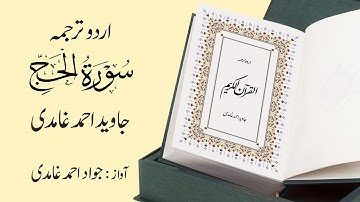 اردو ترجمہ
سُوْرَةُ الْحَجِّ
جاوید احمد غامدی
آواز : جواد احمد غامدی
اردو ترجمہ
القرآن الکریم
جاوید احمد غامدی